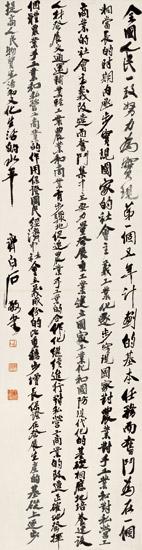 全國人民一致努力為實現第一個五年計劃的基本任務而奮鬥為在一個
相當長的時期內逐步實現國家的社會主義工業化逐步實現國家對農業對手工業和對私營工
商業的社會主義改造而奮鬥集中主要力量發展重工業建立國家工業化和國防現代化的基礎相應地培養建設
人材發展交通運輸業輕工業農業和商業有步驟地促進農業手工業的合作化繼續進行對私營工商業的改造正確地發揮
個體農業手工業和私營工商業的作用保證國民經濟中社會主義成份的比重穩步增長保證在發展生產的基礎上逐步
提高人民物質生活和文化生活的水平
白石